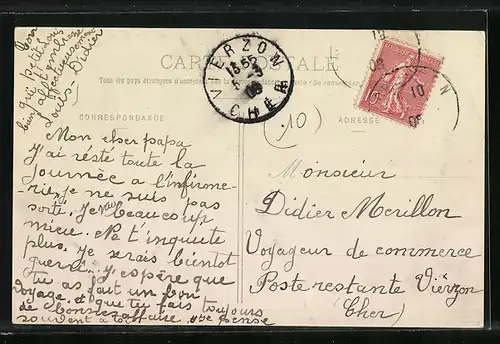 CARTE POSTALE
Tous les pays étrangers n'acceptent pas
CORRESPONDANCE
ADRESSE
VIERZON
CHER
(10)
Mon cher papa
J'ai résté toute la
journée a l'infirme-
rie, je ne suis pas
sorti. Je vais beaucoup
mieux. Ne t'inquiete
plus. Je serais bientot
gueri. J'éspère que
tu as fait un bon
voyage, et que tu fais toujours
de bonnes affaires. Je pense
souvent a toi
ton petit Louis
qui
bien
Louis Didier
Monsieur
Didier Merillon
Voyageur de commerce
Poste restante Vierzon
(Cher)